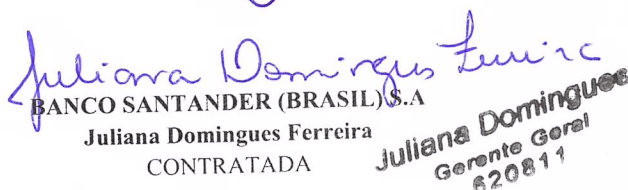 Juliana Domingues Ferreira
BANCO SANTANDER (BRASIL) S.A
Juliana Domingues Ferreira
CONTRATADA
Juliana Domingues
Gerente Geral
620811